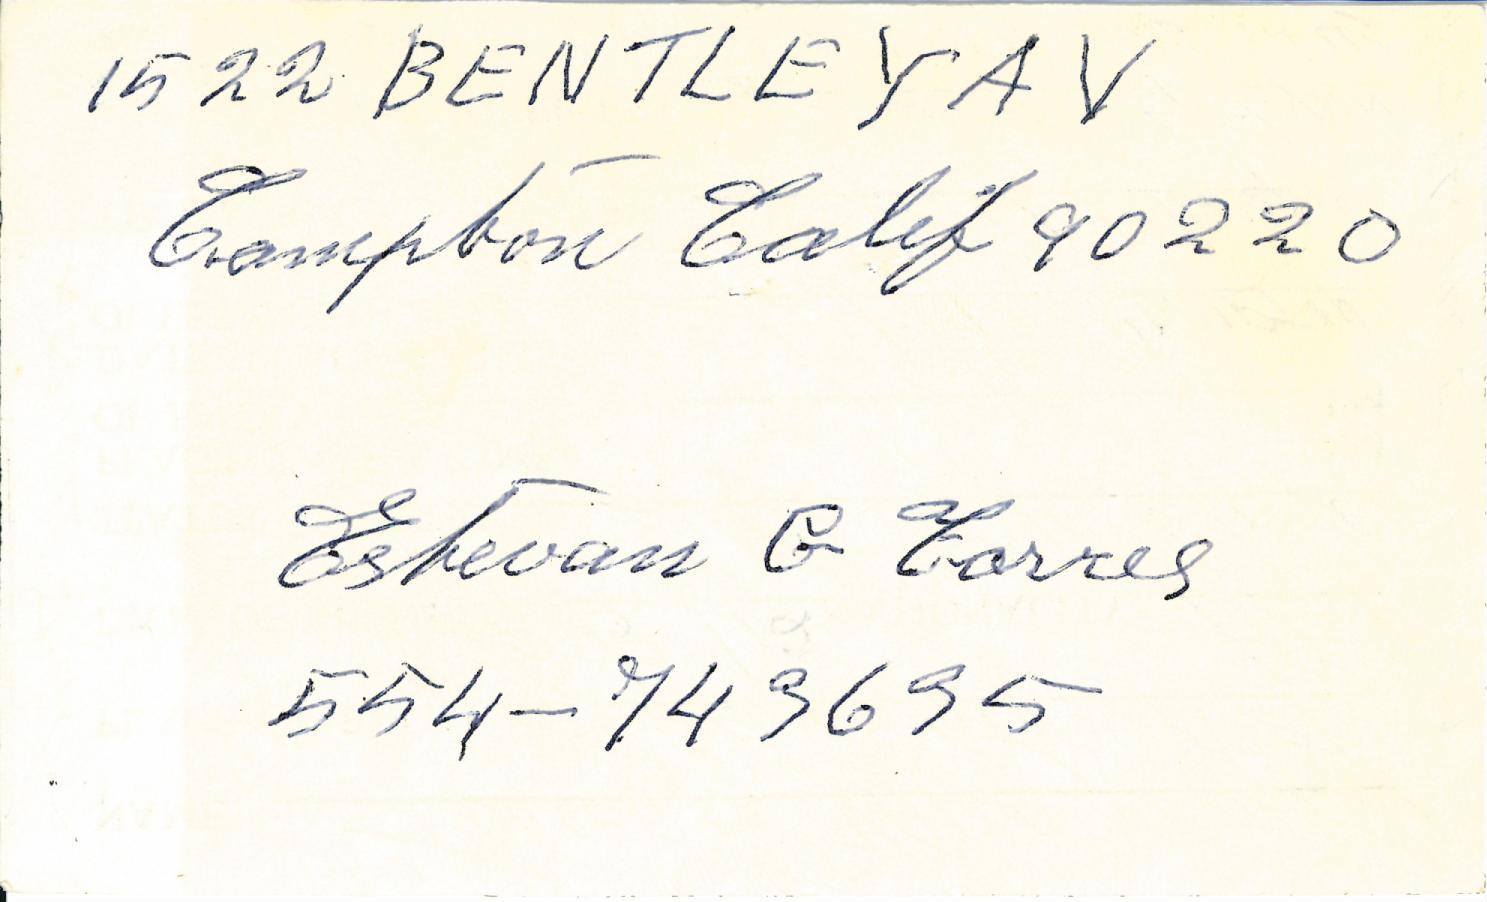 1522 BENTLEY AV
Compton Calif 90220
Estevan G Torres
554-749695